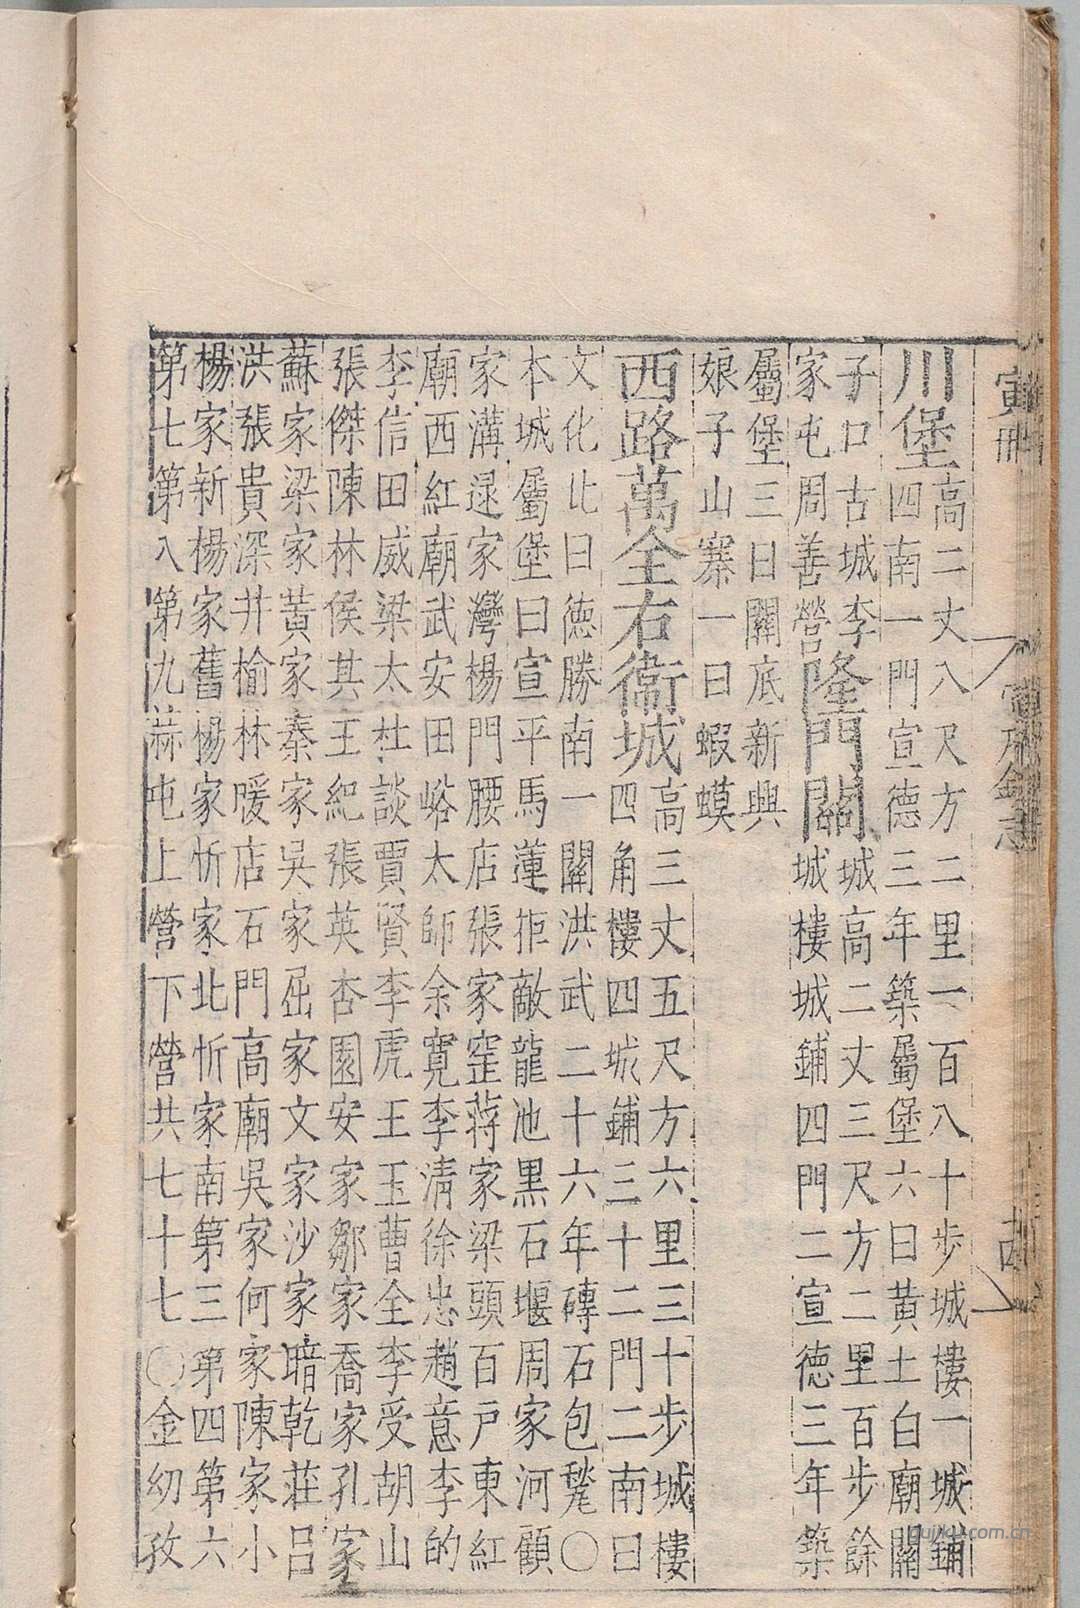 川堡高二丈八尺方二里一百八十步城樓一城鋪
四南一門宣德三年築屬堡六曰黄土白廟關
子口古城李
家屯周善營
隆門關城高二丈三尺方二里百步餘
城樓城鋪四門二宣德三年築
屬堡三曰關底新興
娘子山寨一曰蝦蟆
西路萬全右衞城高三丈五尺方六里三十步城樓
四角樓四城鋪三十二門二南曰
文化北曰德勝南一關洪武二十六年磚石包甃〇
本城屬堡曰宣平馬蓮拒敵龍池黒石堰周家河顧
家溝逯家灣楊門腰店張家窪蔣家梁頭百戸東紅
廟西紅廟武安田峪太師余寛李清徐忠趙意李的
李信田威梁太杜談賈賢李虎王玉曹全李受胡山
張傑陳林侯其王紀張英杏園安家鄒家喬家孔家
蘇家梁家黄家秦家吳家屈家文家沙家暗乾莊吕
洪張貴深井榆林暖店石門高廟吳家何家陳家小
楊家新楊家舊楊家忻家北忻家南第三第四第六
第七第八第九蒜屯上營下營共七十七〇金幼孜
寅冊
gujiku.com.cn